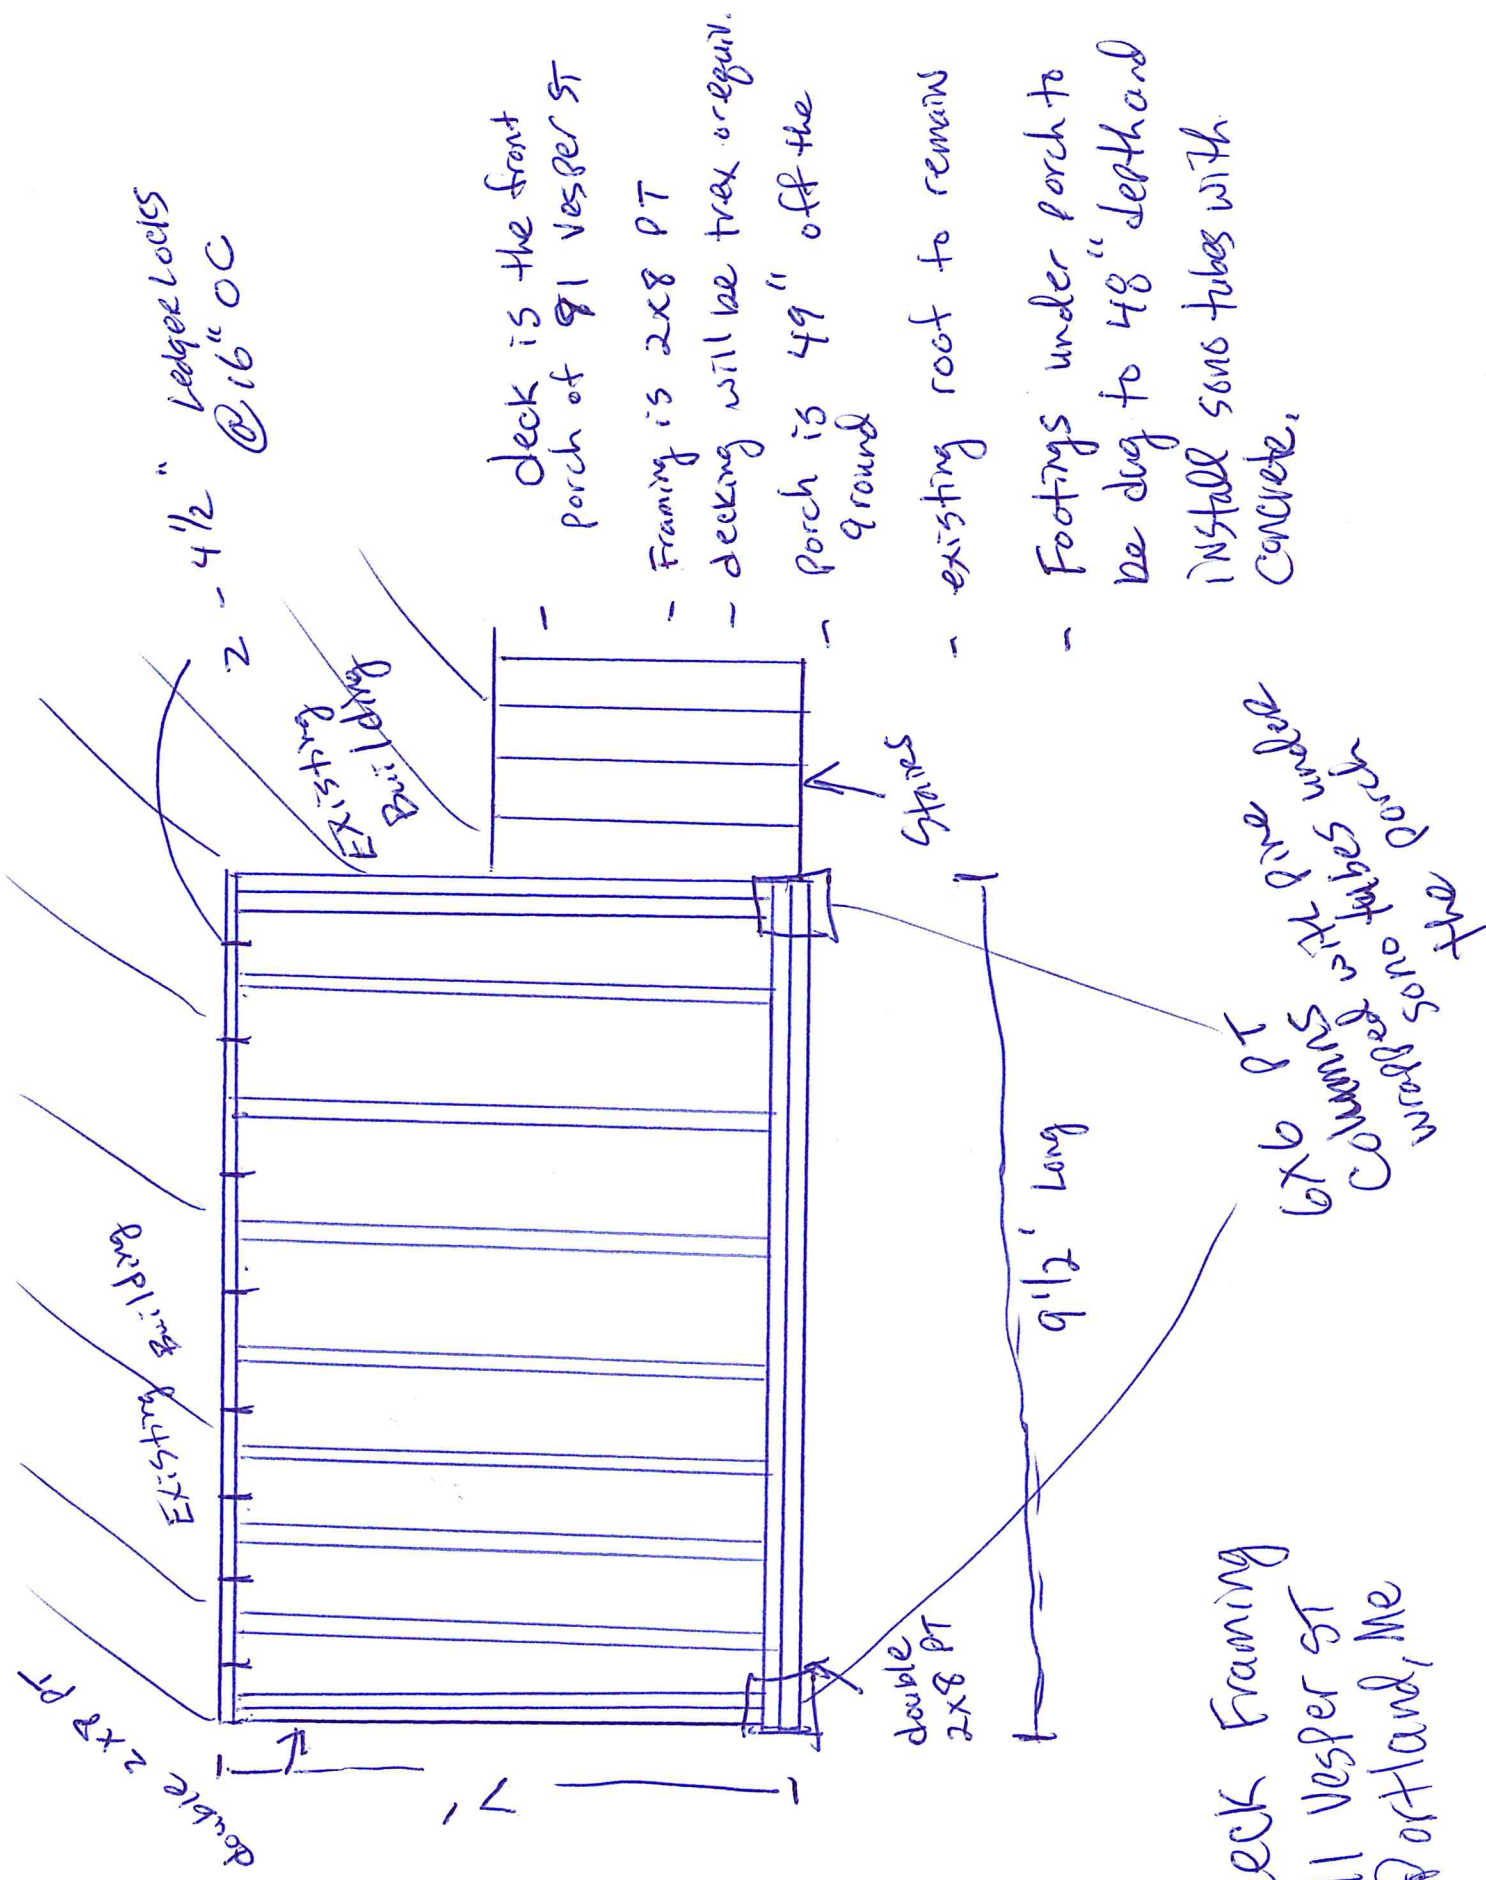 double 2x8 PT
Existing Building
2 - 4 1/2" LedgerLocks
@ 16" OC
Existing
Building
7'
double
2x8 PT
Stairs
9 1/2' Long
6x6 PT
Columns
wrapped with pine
sono tubes under
the porch
- deck is the front
porch of Vesper ST
- Framing is 2x8 PT
- decking will be trex or equiv.
- Porch is 49" off the
ground
- existing roof to remain
- Footings under porch to
be dug to 48" depth and
install sono tubes with
concrete.
eck Framing
Vesper ST
Portland, Me